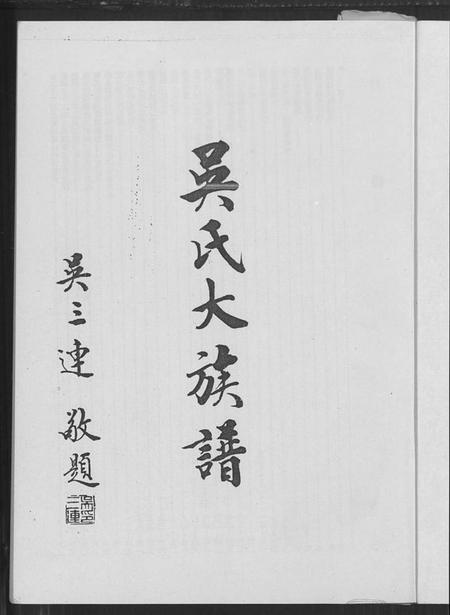 吳氏大族譜
吳三連 敬題
吳三連印